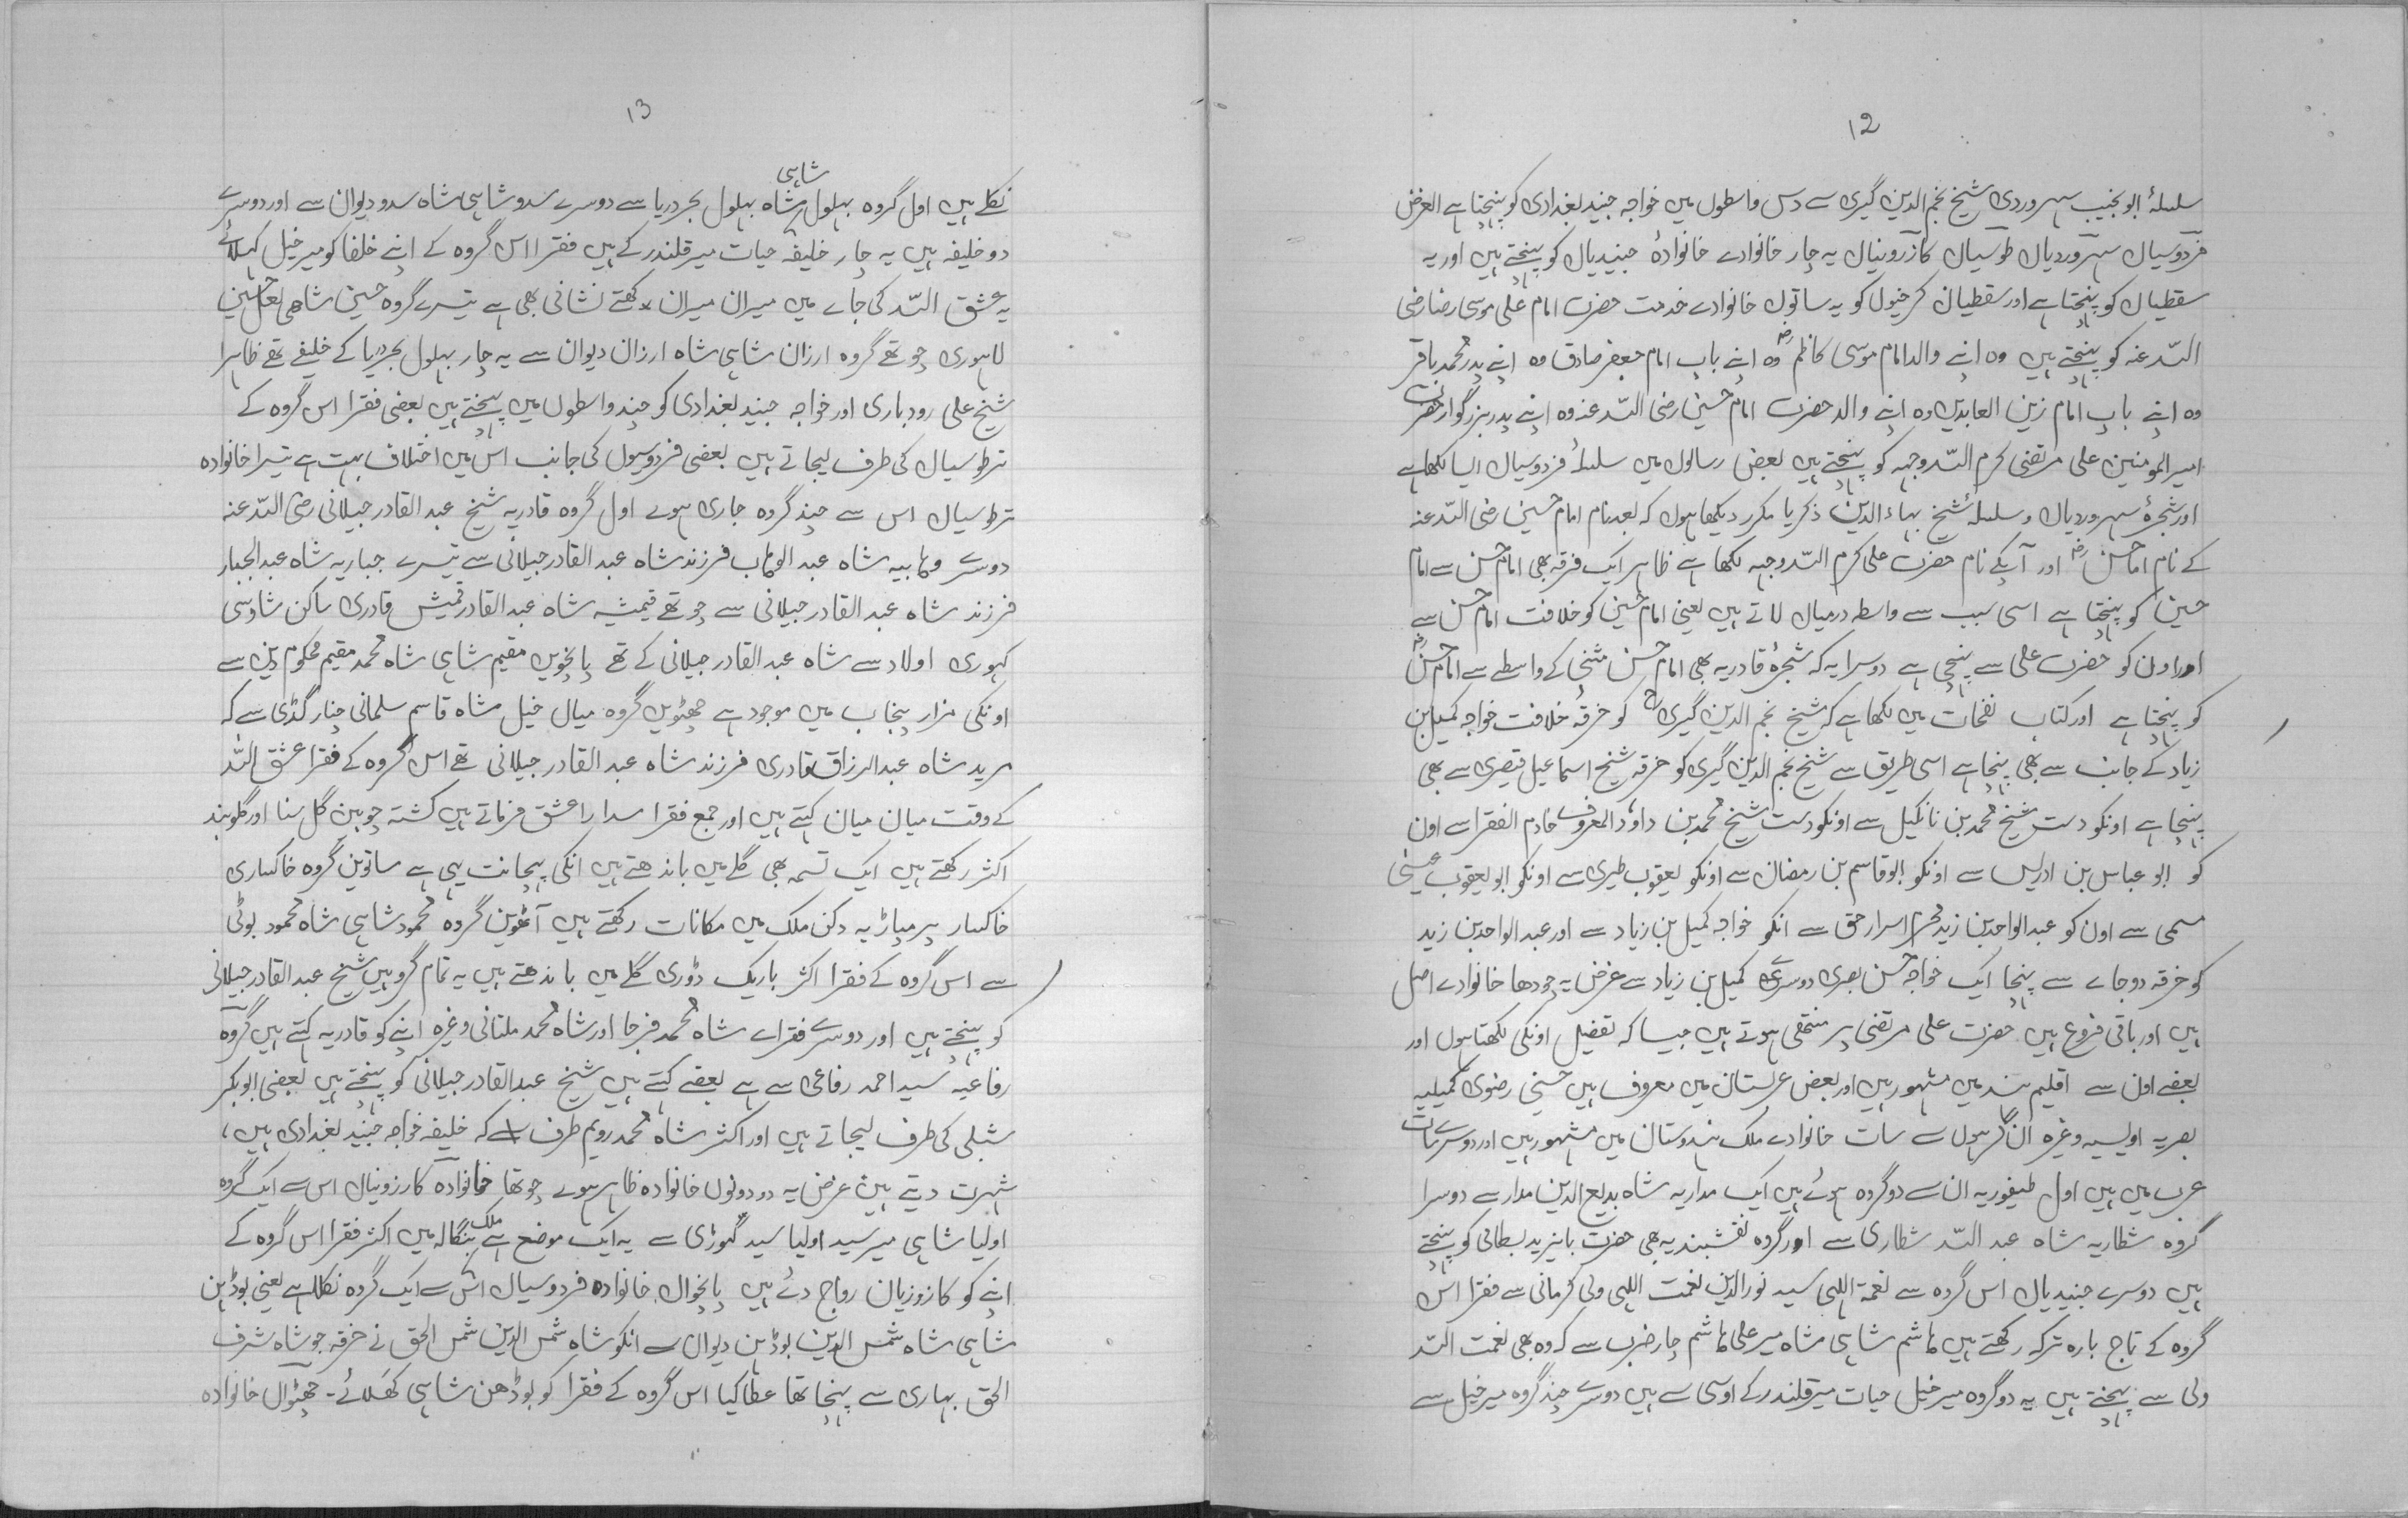 12
سلسلۂ ابو نجیب سہروردی شیخ نجم الدین گیری سے دس واسطوں میں خواجہ جنید بغدادی کو پہنچتا ہے الغرض
فردوسیاں سہروردیاں طوسیاں کازرونیاں یہ چار خانوادے خانوادۂ جنیدیاں کو پہنچتے ہیں اور یہ
سقطیاں کو پہنچتا ہے اور سقطیان کرخیوں کو یہ ساتوں خانوادے خدمت حضرت امام علی موسی رضا رضی
اللہ عنہ کو پہنچتے ہیں وہ اپنے والد امام موسی کاظم رضہ وہ اپنے باپ امام جعفر صادق وہ اپنے پدر محمد باقر
وہ اپنے باپ امام زین العابدین وہ اپنے والد حضرت امام حسین رضی اللہ عنہ وہ اپنے پدر بزرگوار حضرت
امیر المومنین علی مرتضی کرم اللہ وجہہ کو پہنچتے ہیں بعض رسالوں میں سلسلۂ فردوسیاں ایسا لکھا ہے
اور شجرۂ سہروردیاں و سلسلۂ شیخ بہاء الدین ذکریا مکرر دیکھا ہوں کہ بعد نام امام حسین رضی اللہ عنہ
کے نام امام حسن رضہ اور آپکے نام حضرت علی کرم اللہ وجہہ لکھا ہے ظاہر ایک فرقہ بھی امام حسن سے امام
حسین کو پہنچتا ہے اسی سبب سے واسطہ درمیاں لاتے ہیں یعنی امام حسین کو خلافت امام حسن سے
اور اون کو حضرت علی سے پہنچی ہے دوسرا یہ کہ شجرۂ قادریہ بھی امام حسن مثنی کے واسطے سے امام حسن رضہ
کو پہنچتا ہے اور کتاب نفحات میں لکھا ہے کہ شیخ نجم الدین گیری رح کو خرقۂ خلافت خواجہ کمیل بن
زیاد کے جانب سے بھی پہنچا ہے اسی طریق سے شیخ نجم الدین گیری کو خرقہ شیخ اسماعیل قیصری سے بھی
پہنچا ہے اونکو دست شیخ محمد بن نانکیل سے اونکو دست شیخ محمد بن داود المعروف خادم الفقرا سے اون
کو ابو عباس بن ادریس سے اونکو ابو قاسم بن رمضان سے اونکو یعقوب طبری سے اونکو ابو یعقوب عیسٰی
مسمی سے اون کو عبد الواحد بن زید محرم اسرار حق سے انکو خواجہ کمیل بن زیاد سے اور عبد الواحد بن زید
کو خرقہ دو جاے سے پہنچا ایک خواجہ حسن بصری دوسرے کمیل بن زیاد سے غرض یہ چودھا خانوادے اصل
ہیں اور باقی فروع ہیں حضرت علی مرتضی پر منتھی ہوتے ہیں جیسا کہ تفضیل اونکی لکھتا ہوں اور
بعضے اون سے اقلیم ہند میں مشہور ہیں اور بعض عربستان میں معروف ہیں حسنی رضوی کمیلیہ
بصریہ اویسیہ وغیرہ ان گرہوں سے سات خانوادے ملک ہندوستان میں مشہور ہیں اور دوسرے سات
عرب میں ہیں اول طیفوریہ ان سے دو گروہ ہوئے ہیں ایک مداریہ شاہ بدیع الدین مدار سے دوسرا
گروہ شطاریہ شاہ عبد اللہ شطاری سے اور گروہ نقشبندیہ بھی حضرت بایزید بسطامی کو پہنچتے
ہیں دوسرے جنیدیاں اس گروہ سے نعمۃ اللہی سید نورالدین نعمت اللہی ولی کرمانی سے فقرا اس
گروہ کے تاج بارہ ترکہ رکھتے ہیں ہاشم شاہی شاہ میر علی ہاشم چار ضرب سے کہ وہ بھی نعمت اللہ
ولی سے پہنچتے ہیں یہ دو گروہ میر خیل حیات میر قلندر کے اوسی سے ہیں دوسرے چند گروہ میر خیل سے
13
نکلے ہیں اول گروہ بہلول شاہی شاہ بہلول بحر دریا سے دوسرے سدو شاہی شاہ سدو دیوان سے اور دوسرے
دو خلیفہ ہیں یہ چار خلیفہ حیات میر قلندر کے ہیں فقرا اس گروہ کے اپنے خلفا کو میر خیل کہلائے
یہ عشق اللہ کی جاے میں میران میران کھتے نشانی بھی ہے تیسرے گروہ حسین شاھی لعل حسین
لاہوری چوتھے گروہ ارزان شاہی شاہ ارزان دیوان سے یہ چار بہلول بحر دریا کے خلیفے تھے ظاہرا
شیخ علی رودباری اور خواجہ جنید بغدادی کو چند واسطوں میں پہنچتے ہیں بعضی فقرا اس گروہ کے
ترطوسیاں کی طرف لیجاتے ہیں بعضی فردوسیوں کی جانب اس میں اختلاف بہت ہے تیسرا خانوادہ
ترطوسیاں اس سے چند گروہ جاری ہوے اول گروہ قادریہ شیخ عبد القادر جیلانی رضی اللہ عنہ
دوسرے وہابیہ شاہ عبد الوہاب فرزند شاہ عبد القادر جیلانی سے تیسرے جباریہ شاہ عبد الجبار
فرزند شاہ عبد القادر جیلانی سے چوتھے قیمشہ شاہ عبد القادر قمیش قادری ساکن شادسی
کہوری اولاد سے شاہ عبد القادر جیلانی کے تھے پانچویں مقیم شاہی شاہ محمد مقیم محکوم دین سے
اونکی مزار پنجاب میں موجود ہے چھٹویں گروہ میاں خیل شاہ قاسم سلمانی چنار گڈی سے کہ
مرید شاہ عبد الرزاق قادری فرزند شاہ عبد القادر جیلانی تھے اس گروہ کے فقرا عشق اللہ
کے وقت میان میان کہتے ہیں اور جمع فقرا سدارا عشق فرماتے ہیں کشتہ چوبین گل سنا اور گلوبند
اکثر رکھتے ہیں ایک تسمہ بھی گلے میں باندھتے ہیں انکی پہچانت یہی ہے ساتوین گروہ خاکساری
خاکسار پر میاڑیہ دکن ملک میں مکانات رکھتے ہیں آٹھوین گروہ محمود شاہی شاہ محمود بوٹی
سے اس گروہ کے فقرا اکثر باریک ڈوری گلے میں باندھتے ہیں یہ تمام گروہیں شیخ عبد القادر جیلانی
کو پہنچتے ہیں اور دوسرے فقراے شاہ محمد فرجا اور شاہ محمد ملتانی وغیرہ اپنے کو قادریہ کہتے ہیں گروہ
رفاعیہ سید احمد رفاعی سے ہے بعضے کہتے ہیں شیخ عبد القادر جیلانی کو پہنچتے ہیں بعضی ابو بکر
شبلی کی طرف لیجاتے ہیں اور اکثر شاہ محمد رویم طرف کہ خلیفہ خواجہ جنید بغدادی ہیں،
شہرت دیتے ہین غرض یہ دو دونوں خانوادہ ظاہر ہوے چوتھا خانوادہ کارزونیاں اس سے ایک گروہ
اولیا شاہی میر سید اولیا سید گہوڑی سے یہ ایک موضع ہے ملک بنگالہ میں اکثر فقرا اس گروہ کے
اپنے کو کازوزیان رواج دئے ہیں پانچواں خانوادہ فردوسیاں اس سے ایک گروہ نکلا ہے یعنی بوڈہن
شاہی شاہ شمس الدین بوڈہن دیوان سے انکو شاہ شمس الدین شمس الحق نے خرقہ جو شاہ شرف
الحق بہاری سے پہنچا تھا عطا کیا اس گروہ کے فقرا کو بوڈھن شاہی کھلائے۔ چھٹواں خانوادہ